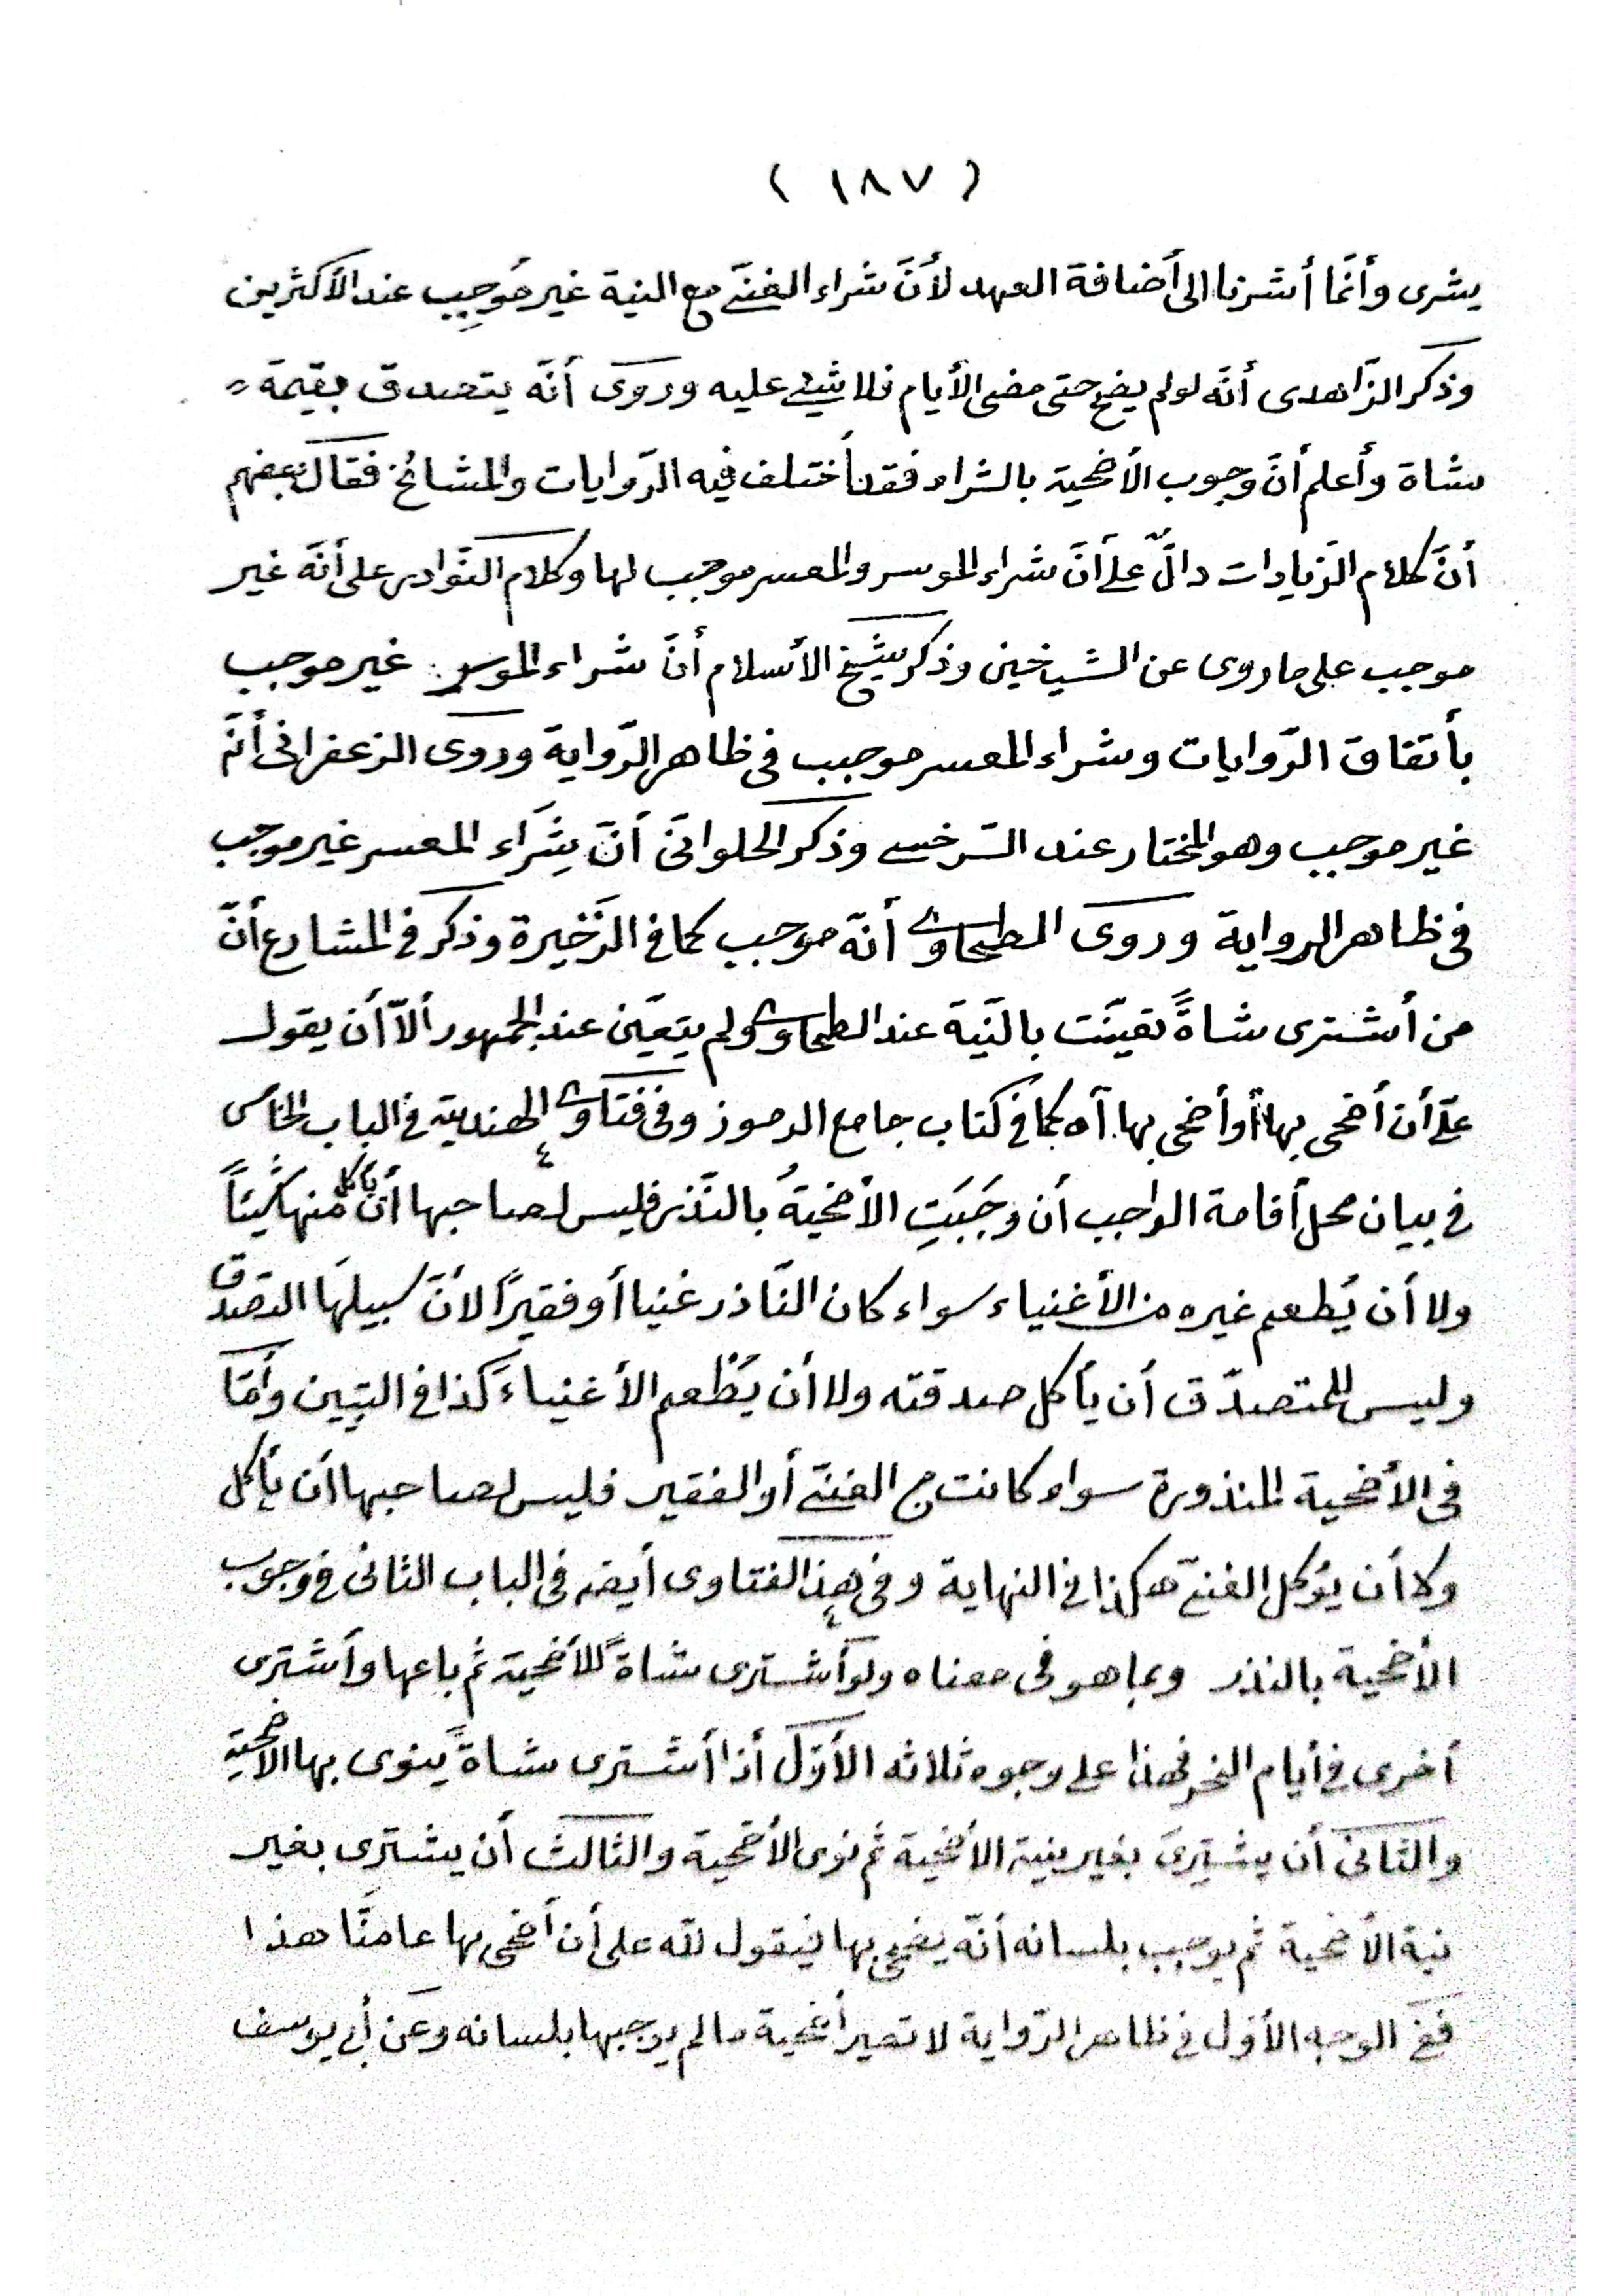 ( ١٨٧ )
يشرى وأنّما أشرنا الى أضافة العهد لأنّ شراء الغنىّ مع النية غير مُوجِبٍ عند الأكثرين
وذكر الزّاهدى أنّه لو لم يضح حتى مضى الأيام فلا شيئ عليه وروى أنّه يتصدق بقيمة
شاة وأعلم أنّ وجوب الأضحية بالشراء فقد أختلف فيه الرّوايات والمشائخ فقال بعضهم
أنّ كلام الزيادات دالّ على أنّ شراء الموسر والمعسر موجب لها وكلام النّوادر على أنّه غير
موجب على ما روى عن الشيخين وذكر شيخ الأسلام أنّ شراء الموسر غير موجب
بأتفاق الرّوايات وشراء المعسر موجب فى ظاهر الرّواية وروى الزعفرانى أنّه
غير موجب وهو المختار عند السّرخسى وذكر الحلوانىّ أنّ شِرَاء المعسر غير موجب
فى ظاهر الرواية وروى الطحاوى أنّه موجب كما فى الذّخيرة وذكر فى المشارع أنّ
من أشترى شاةً تعيّنت بالنّية عند الطحاوى ولم يتعيّن عند الجمهور ألّا أن يقول
علىّ أن أضحى بها أو أضحى بها آه كما فى كتاب جامع الرموز وفى فتاوى الهندية فى الباب الخامس
فى بيان محل أقامة الواجب أن وجَبَتِ الأضحيةُ بالنّذر فليس لصاحبها أن يأكل منها شيئاً
ولا أن يُطعم غيره من الأغنياء سواء كان النّاذر غنيا أو فقيرًا لأنّ سبيلهَا التصدق
وليس للمتصدّق أن يأكل صدقته ولا أن يُطْعم الأغنياءَ كذا فى التبيين وأمّا
فى الأضحية المنذورة سواء كانت من الغنىّ أو الفقير فليس لصاحبها أن يأكل
ولا أن يؤكل الغنىّ هكذا فى النهاية وفى هذا الفتاوى أيضه فى الباب الثانى فى وجوب
الأضحية بالنذر وبما هو فى معناه ولو أشترى شاةً للأضحية ثم باعها وأشترى
أخرى فى أيام النحر فهذا على وجوه ثلاثه الأوّل أذا أشترى شاةً ينوى بها الأضحية
والثانى أن يشترِىَ بغير نية الأضحية ثم نوى الأضحية والثالث أن يشترى بغير
نية الأضحية ثم يوجب بلسانه أنّه يضحى بها فيقول للّه على أن أضحى بها عامنَا هذا
ففى الوجه الأوّل فى ظاهر الرّواية لا تصير أضحية ما لم يوجبها بلسانه وعن أبى يوسف